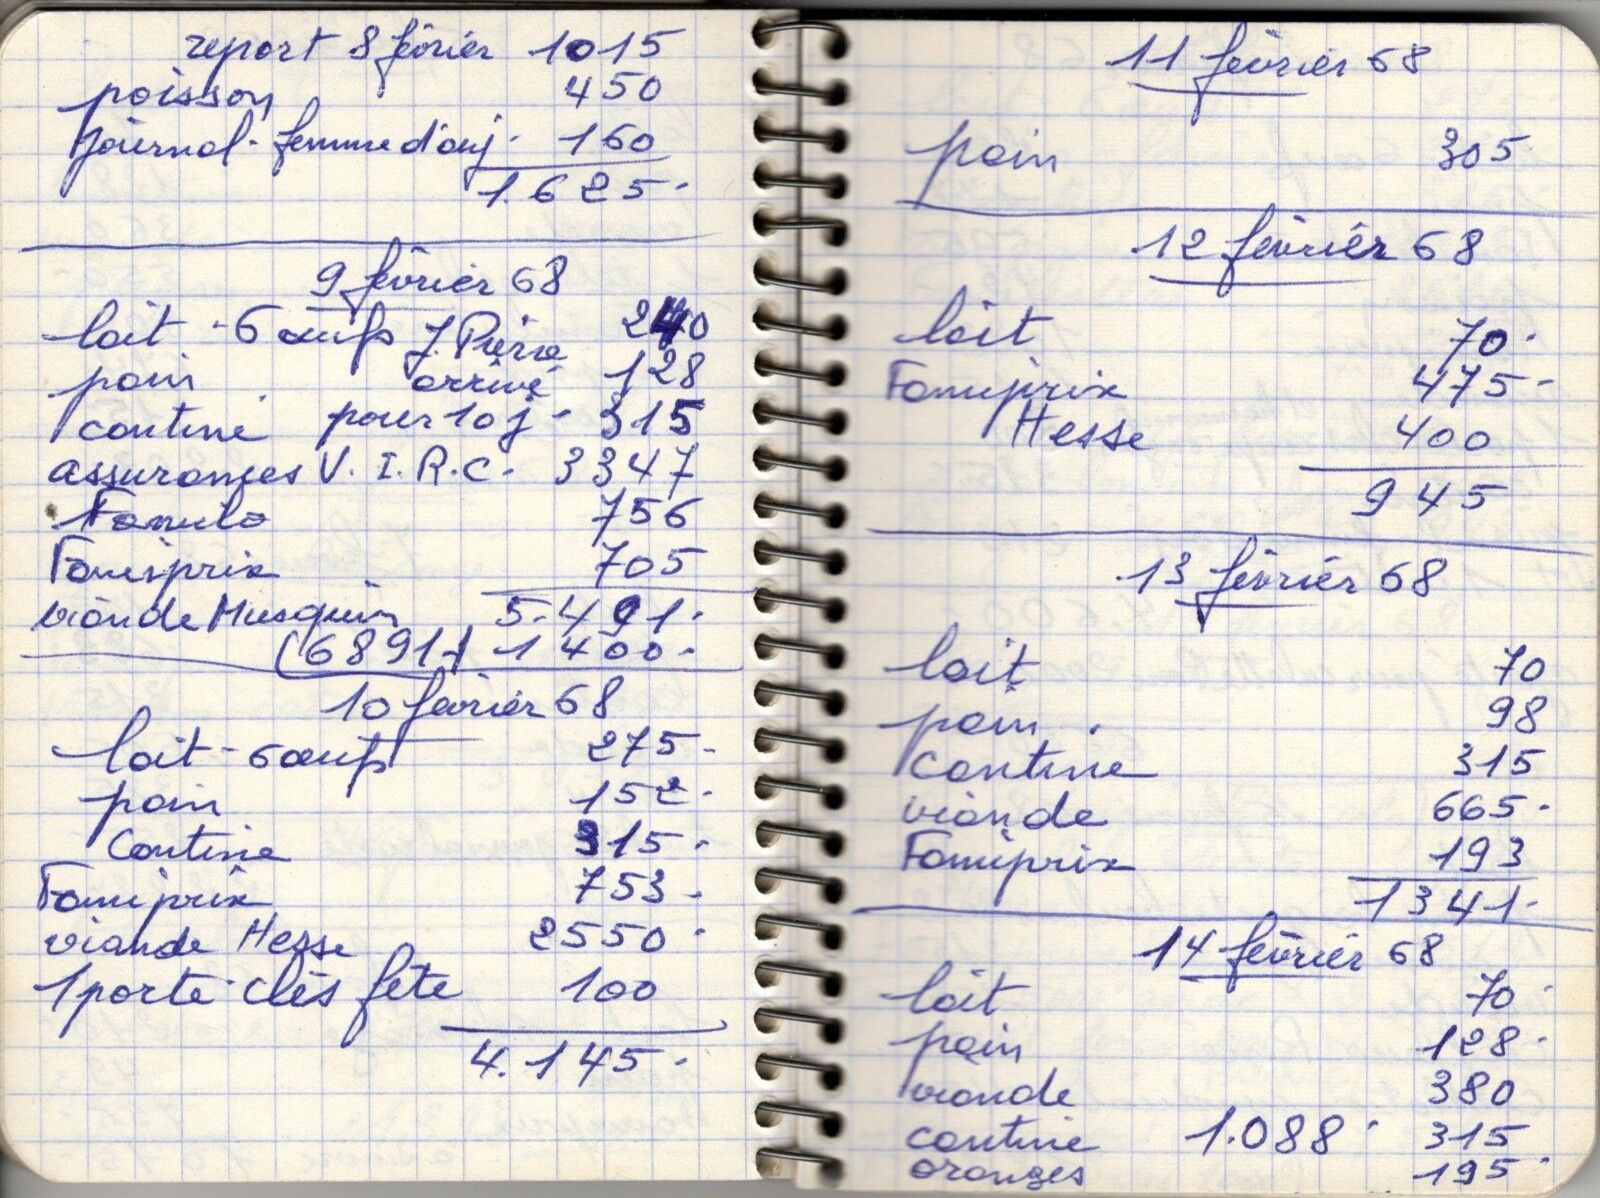 report 8 février 1015
poisson 450
journal - femme d'auj. 160
1.625.
9 février 68
lait - 6 œufs J. Pierre 240
pain arrivé 128
cantine pour 10 j - 315
assurances V. I. R. C. 3347
Famila 756
Famiprix 705
5.491.
viande Musquin
(6891) 1400.
10 février 68
lait - 6 œufs 275.
pain 152.
Cantine 315.
Famiprix 753.
viande Hesse 2550.
1 porte-clés fête 100
4.145.
11 février 68
pain 305
12 février 68
lait 70.
Famiprix 475-
Hesse 400
945
13 février 68
lait 70
pain 98
Cantine 315
viande 665.
Famiprix 193
1341.
14 février 68
lait 70.
pain 128.
viande 380
cantine 1.088. 315
oranges 195.